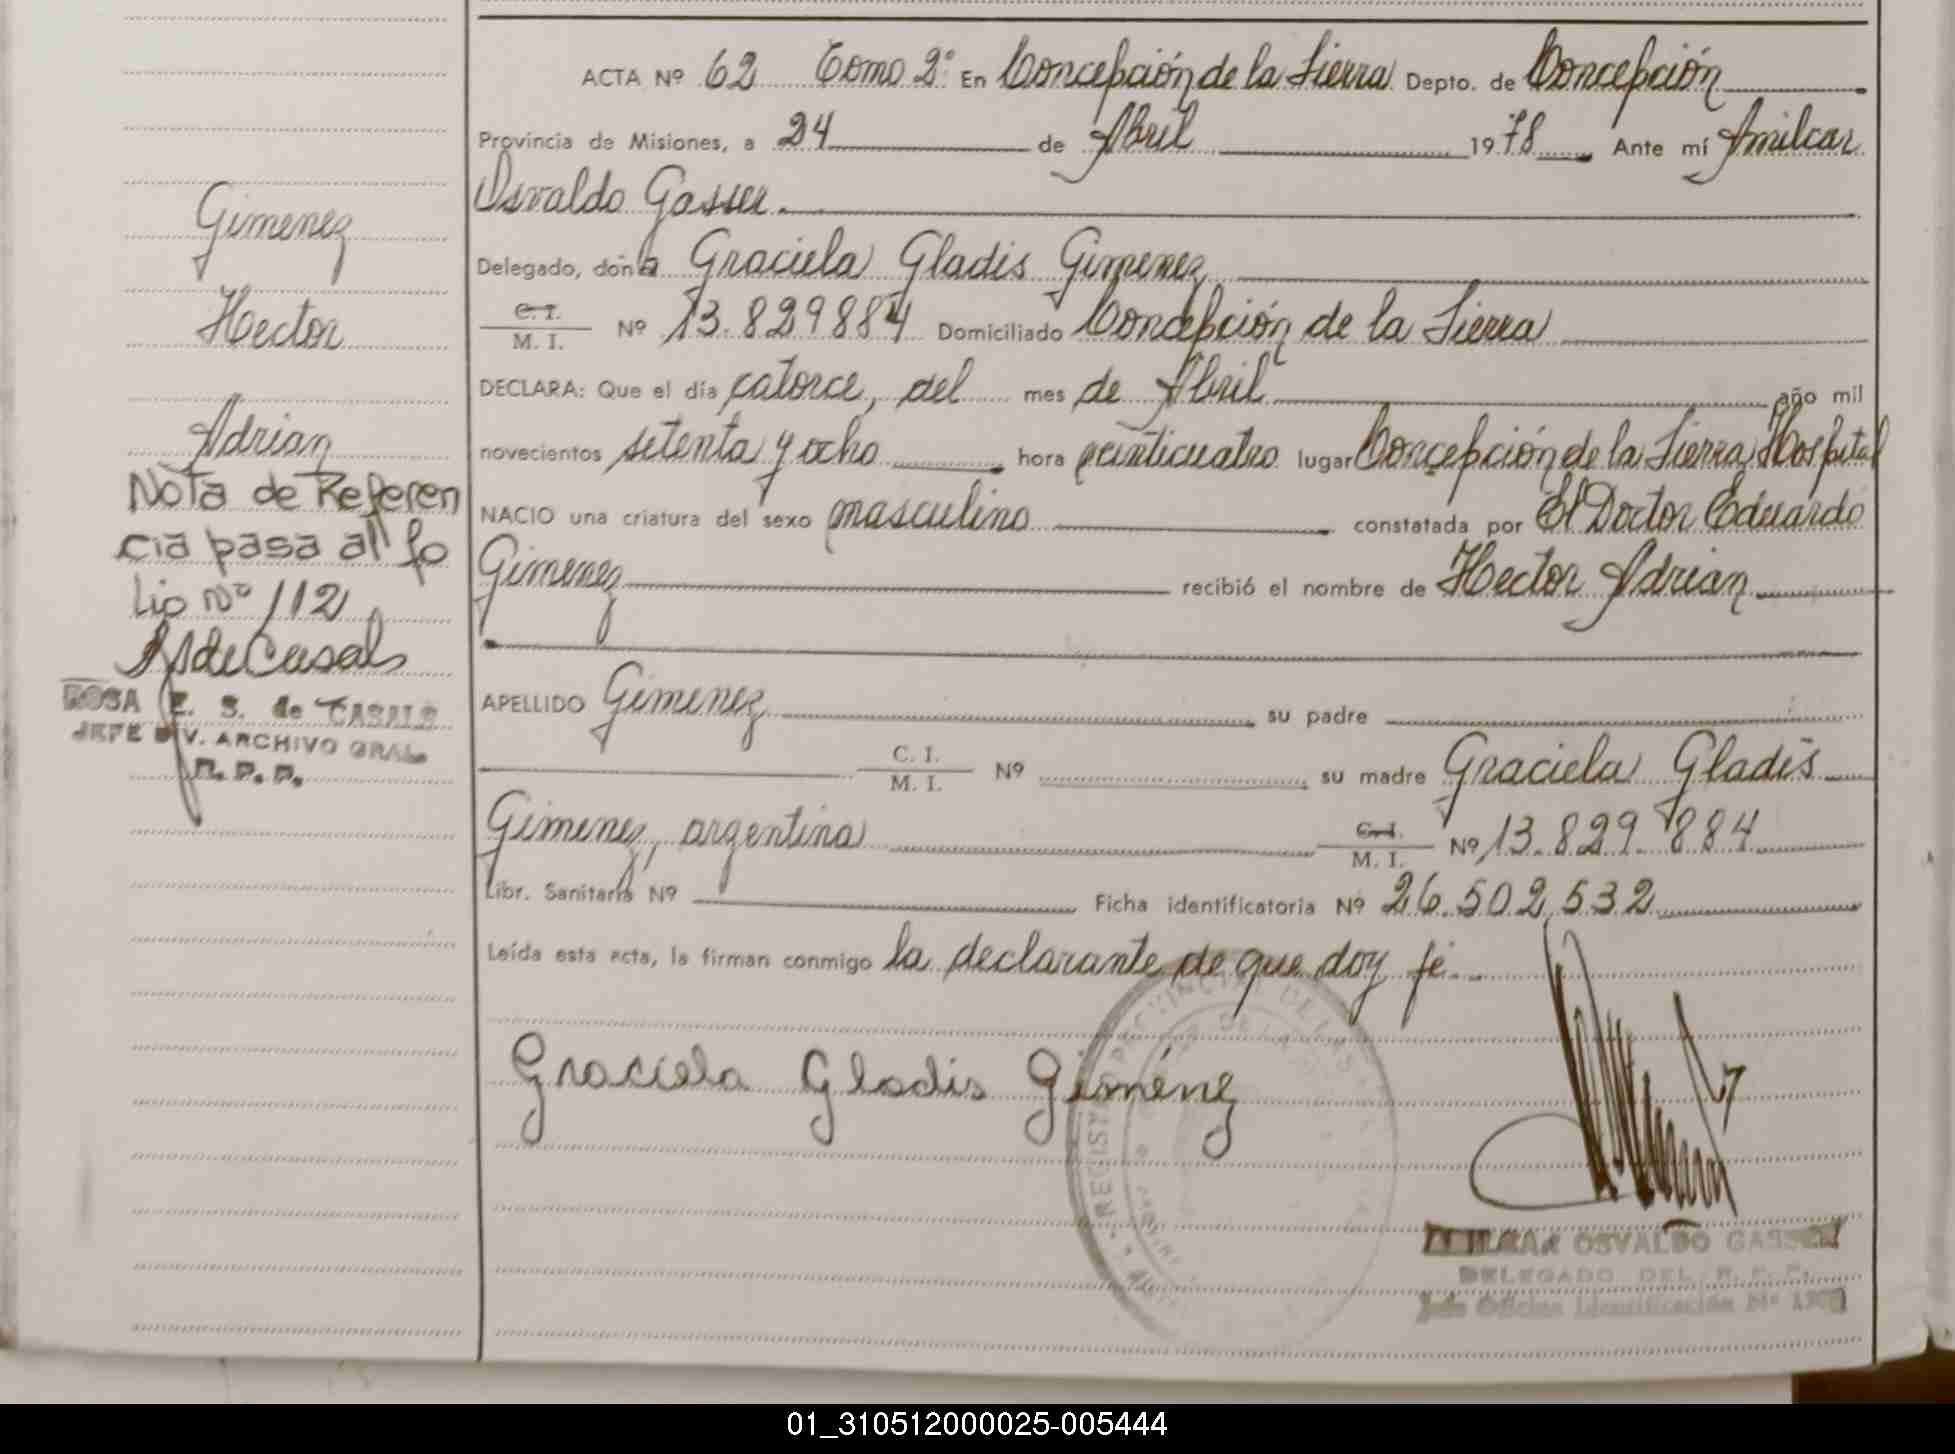 ACTA Nº 62 Tomo 2º En Concepción de la Sierra Depto. de Concepción
Provincia de Misiones, a 24 de Abril 1978 Ante mí Amilcar
Osvaldo Gasser.
Delegado, doña Graciela Gladis Gimenez
C. I.
M. I. Nº 13.829884 Domiciliado Concepción de la Sierra
DECLARA: Que el día catorce, del mes de Abril año mil
novecientos setenta y ocho hora veinticuatro lugar Concepción de la Sierra Hospital
NACIO una criatura del sexo masculino constatada por El Doctor Eduardo
Gimenez recibió el nombre de Hector Adrian
APELLIDO Gimenez su padre
C. I.
M. I. Nº su madre Graciela Gladis
Gimenez, argentina C. I.
M. I. Nº 13.829.884
Libr. Sanitaria Nº Ficha identificatoria Nº 26.502.532
Leída esta acta, la firman conmigo la declarante de que doy fé.
Graciela Gladis Giménez
OSVALDO GASSER
DELEGADO DEL R. P. P.
Jefe Oficina Identificación Nº
Gimenez
Hector
Adrian
Nota de Referen
cia pasa all fo
lio Nº 112
ROSA E. S. de CASALS
JEFE DIV. ARCHIVO GRAL
R. P. P.
01_310512000025-005444